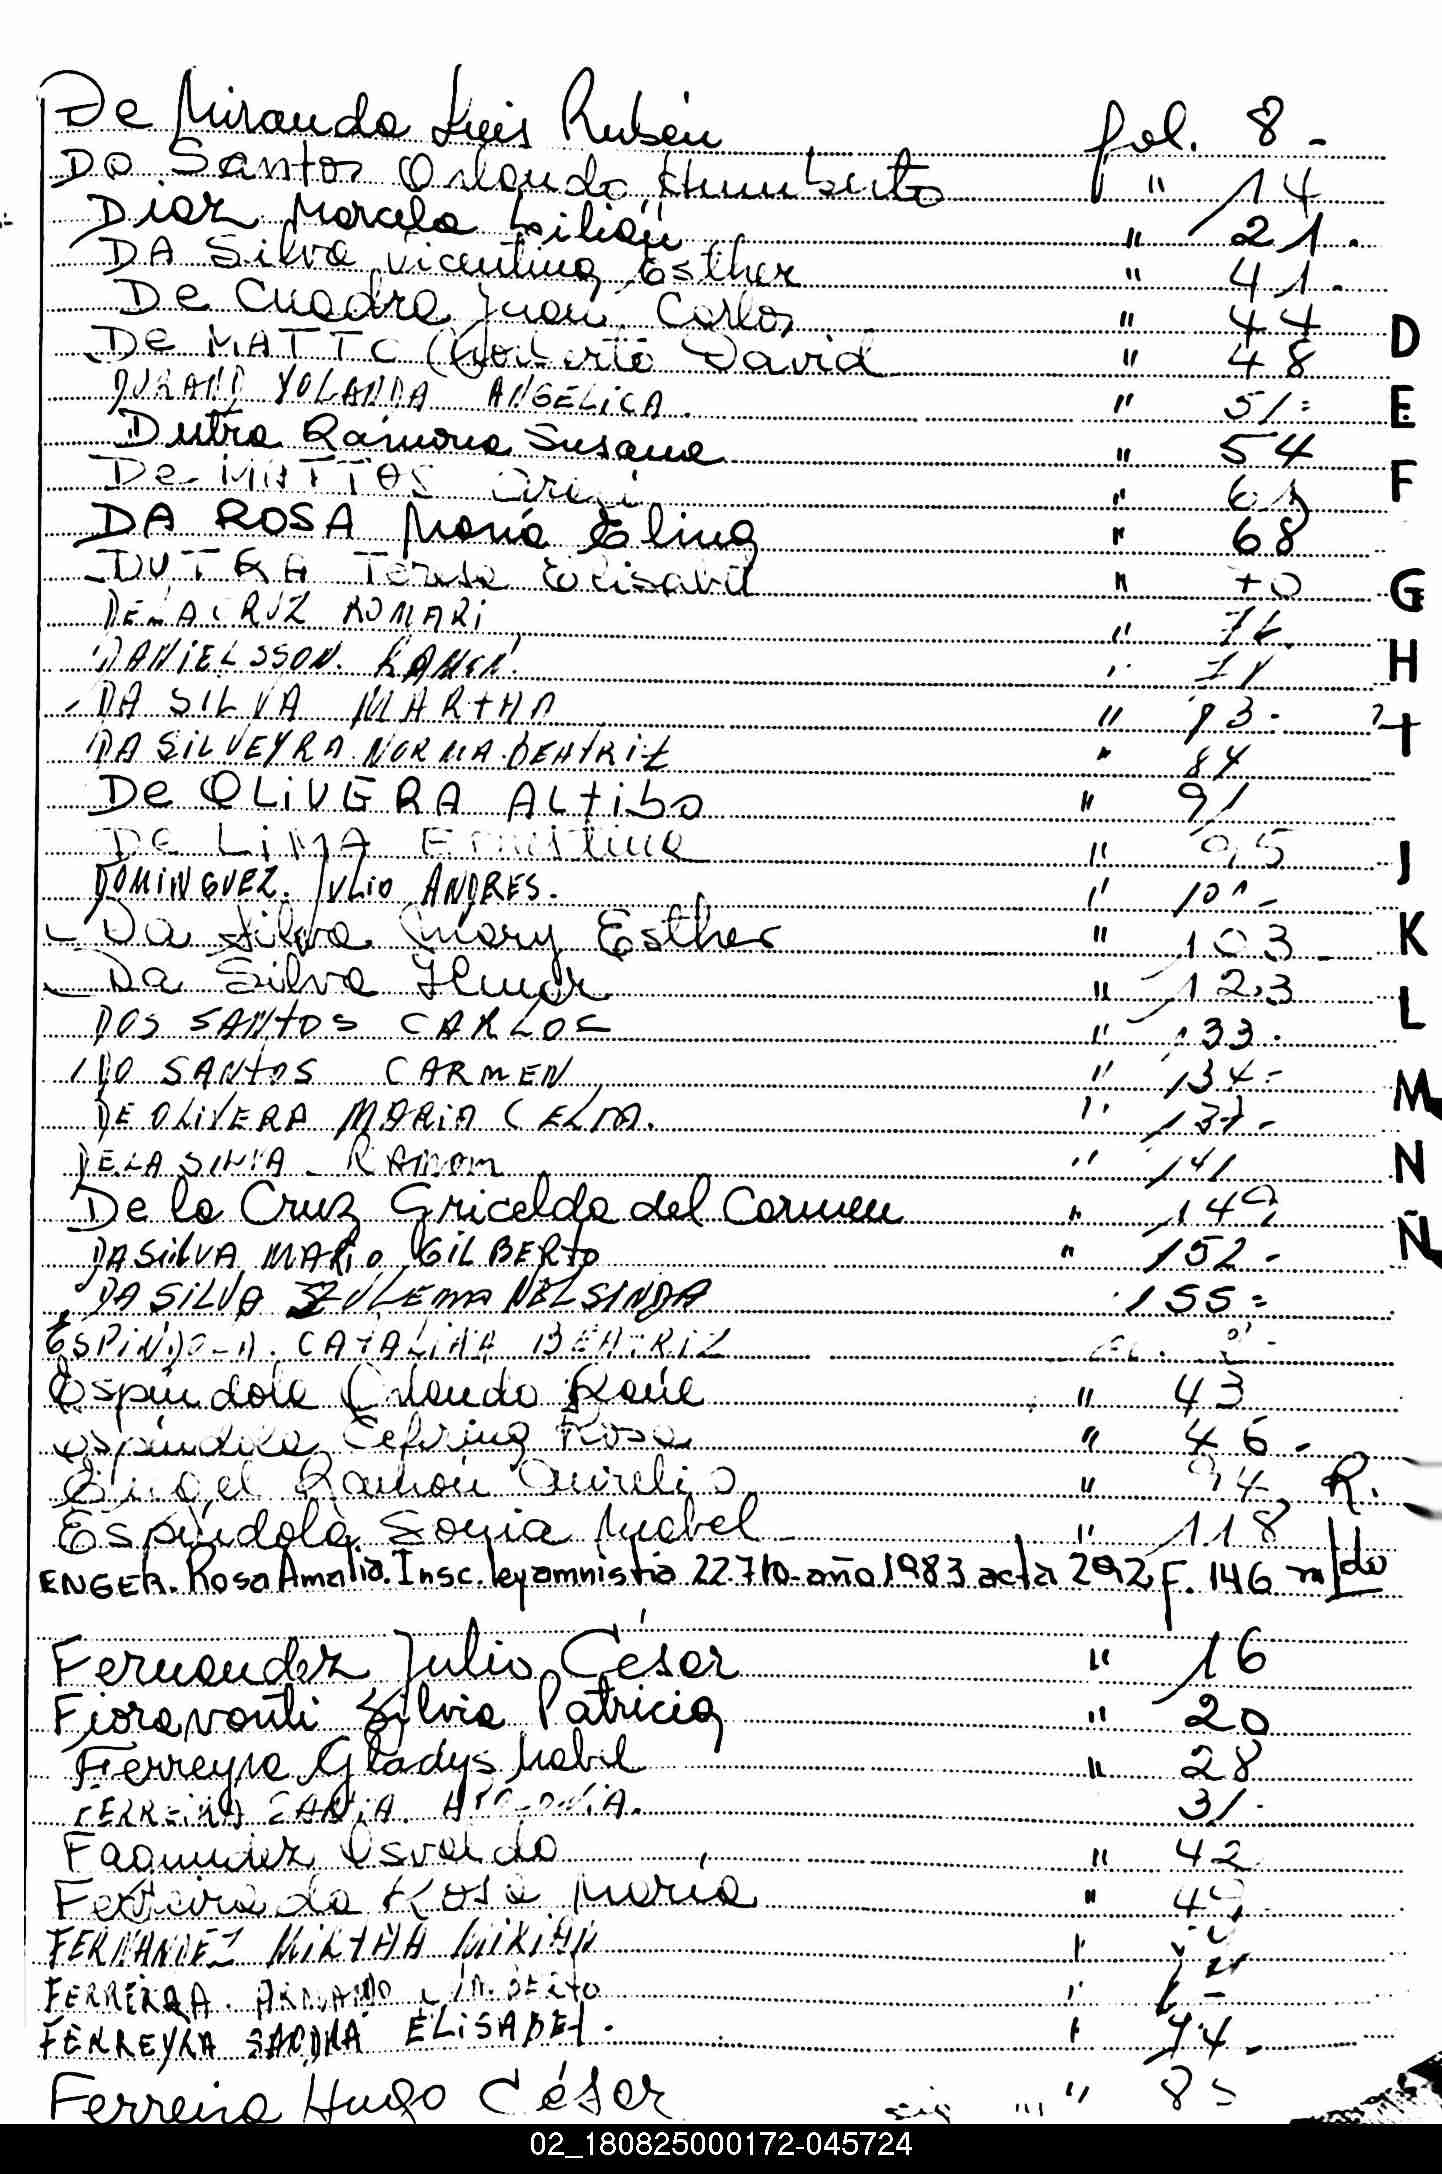 De Miranda Luis Rubén fol. 8-
Do Santos Orlando Humberto " 14
Diaz Marcela Lilian " 21.
DA Silva Vicentina Esther " 41.
De Cuadra Juan Carlos " 44
De MATTO Norberto David " 48 D
DURAND YOLANDA ANGELICA. " 51= E
Dutra Ramona Susana " 54
De MATTOS " F
DA ROSA María Elina " 68
DUTRA Teresa Elisabet " 70 G
DE LA CRUZ ROMARI "
DANIELSSON. H
DA SILVA MARTHA " I
DA SILVEYRA NORMA BEATRIZ " 84
De OLIVERA ALtibo " 91
De LiMA Ernestina " 95
DOMINGUEZ. JULIO ANDRES. " J
Da Silva Mary Esther " 103 K
Da Silva " 123
DOS SANTOS CARLOS " 133. L
DO SANTOS CARMEN " 134= M
DE OLIVERA MARIA CELIA. " 137-
DE LA SILVA - RAMON " 141 N
De la Cruz Gricelda del Carmen " 149 Ñ
DA SILVA MARIO GILBERTO " 152-
DA SILVA ZULEMA NELSINDA 155=
ESPINDOLA. CATALINA BEATRIZ
Espíndola Orlando René " 43
Espíndola Ceferina Rosa " 46-
Ramón Aurelio " 94 R.
Espíndola Sonia Mabel " 118
ENGER. Rosa Amalia. Insc. ley amnistia 22.710-año 1983 acta 292 F. 146 m/do
Fernandez Julio César " 16
Fioravanti Silvia Patricia " 20
Ferreyra Gladys Mabel " 28
FERREIRA 31.
Fagundez Osvaldo " 42
Ferreira da Rosa María " 49
FERNANDEZ MIRTHA MIRIAN
FERREIRA. ARMANDO
FERREYRA SANDRA ELISABET. 74.
Ferreira Hugo César sig " 85
02_180825000172-045724